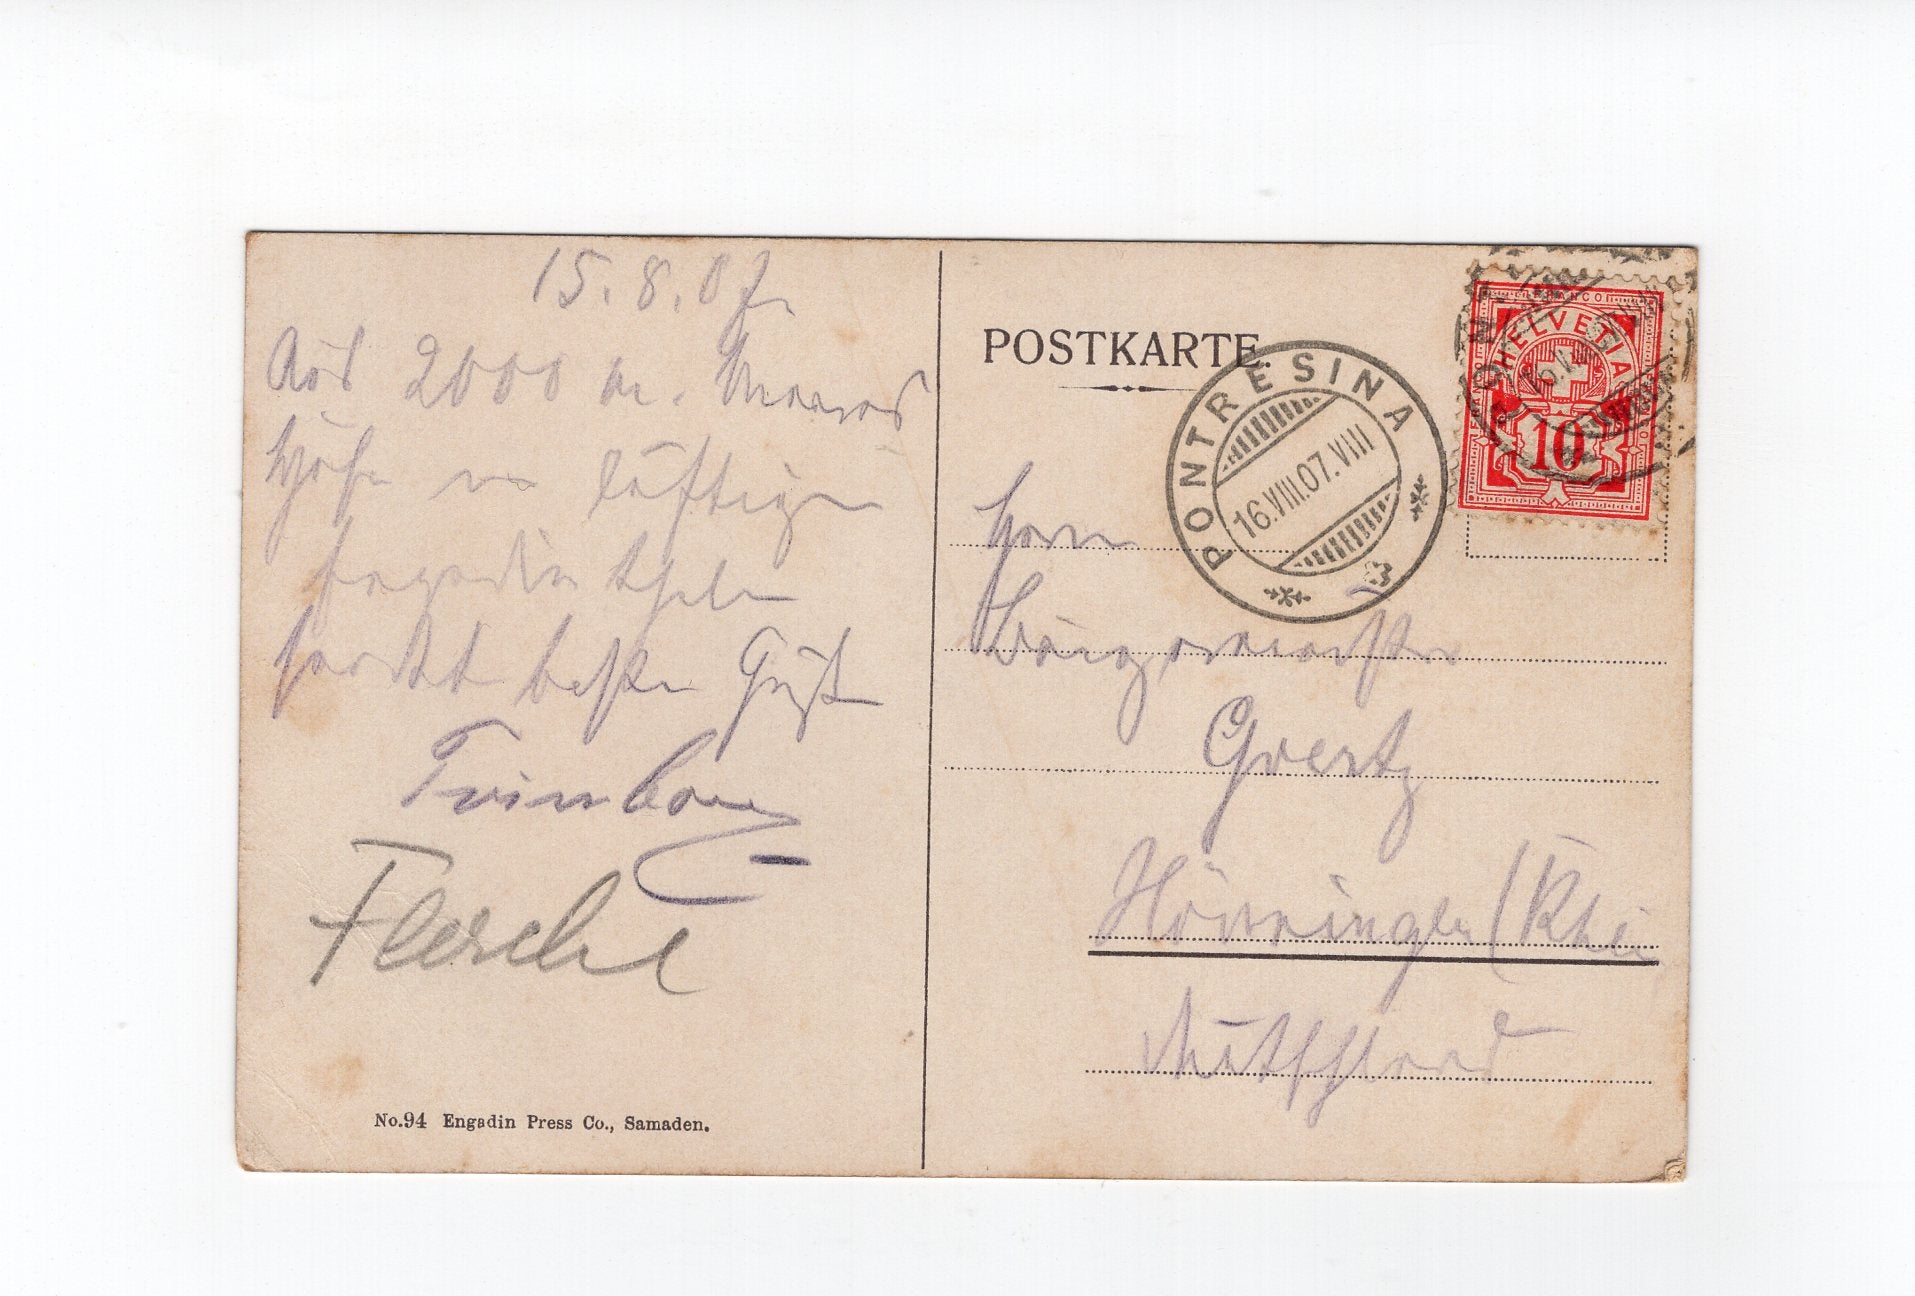 15.8.07.
Aus 2000 m. Meeres
Höhe im luftigen
Engadin thale
sendet beste Grüße
Trimborn
Flesche
No.94 Engadin Press Co., Samaden.
POSTKARTE.
PONTRESINA
16.VIII.07.VIII
HELVETIA
FRANCO
10
Herrn
Bürgermeister
Goertz
Hönningen (Rhein
Deutschland